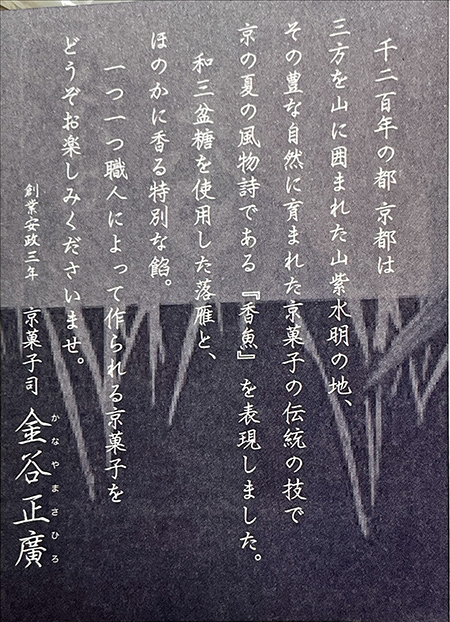 千二百年の都 京都は
三方を山に囲まれた山紫水明の地、
その豊な自然に育まれた京菓子の伝統の技で
京の夏の風物詩である『香魚』を表現しました。
和三盆糖を使用した落雁と、
ほのかに香る特別な餡。
一つ一つ職人によって作られる京菓子を
どうぞお楽しみくださいませ。
創業安政三年 京菓子司 金谷正廣
かなやまさひろ